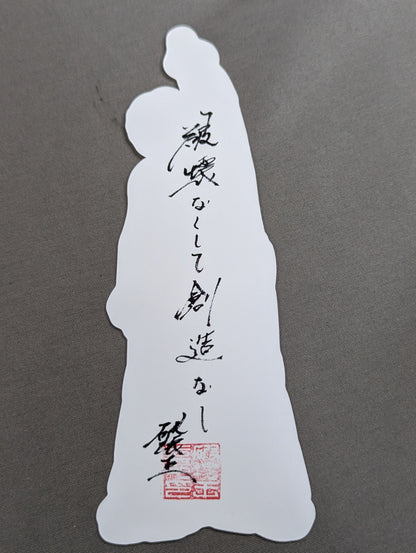 破壊なくして創造なし